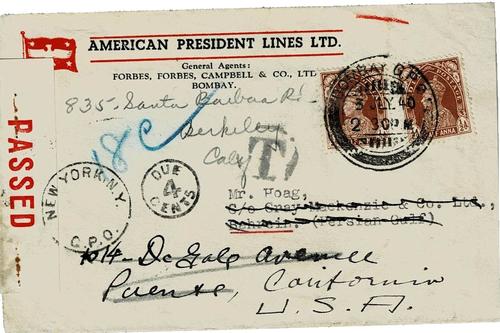 AMERICAN PRESIDENT LINES LTD.
General Agents:
FORBES, FORBES, CAMPBELL & CO., LTD
BOMBAY.
835- Santa Barbara Rd.
Berkeley
Calif
18c
T
BOMBAY G.P.O.
3 JLY. 40
2 30PM
ANNA
PASSED
NEW YORK N.Y.
G.P.O.
DUE
4
CENTS
Mr. Hoag,
C/o Gray Mackenzie & Co. Ltd.,
Bahrein. (Persian Gulf)
Avenue
California
U.S.A.